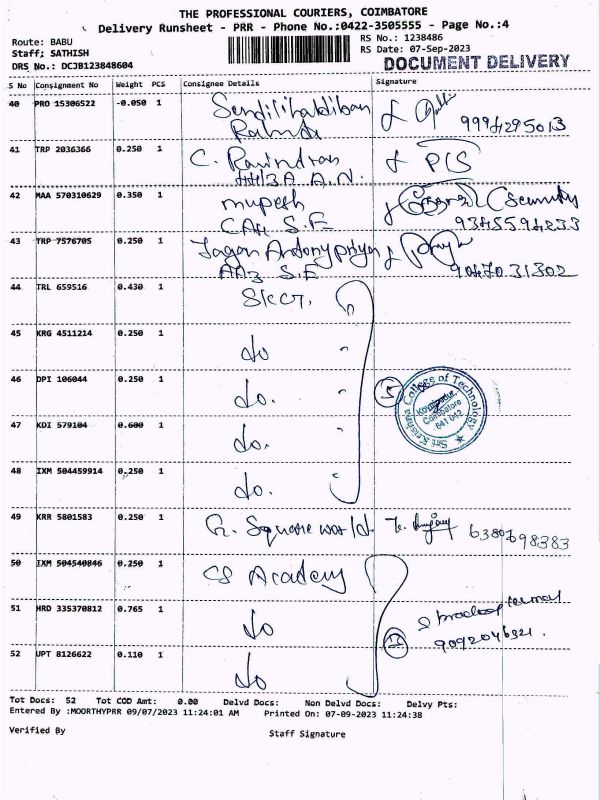 THE PROFESSIONAL COURIERS, COIMBATORE
Delivery Runsheet - PRR - Phone No.:0422-3505555 - Page No.:4
Route: BABU
RS No.: 1238486
Staff: SATHISH
RS Date: 07-Sep-2023
DRS No.: DCJB123848604
DOCUMENT DELIVERY
S No Consignment No Weight PCS Consignee Details Signature
40 PRO 15306522 -0.050 1
9994295013
41 TRP 2036366 0.250 1 C. Ravindran
PCS
42 MAA 570310629 0.350 1 mupesh
Security
S.F 9345594233
43 TRP 7576705 0.250 1
AA3 S.F 9047031302
44 TRL 659516 0.430 1 Skct.
45 KRG 4511214 0.250 1 do
46 DPI 106044 0.250 1 do.
5
Sri Krishna College of Technology
Kovaipudur,
Coimbatore
641 042
47 KDI 579104 0.600 1 do.
48 IXM 504459914 0.250 1 do.
49 KRR 5801583 0.250 1 G. Square world
6380698383
50 IXM 504540846 0.250 1 CS Academy
51 HRD 335370812 0.765 1 do
9092046321.
52 UPT 8126622 0.110 1 do
Tot Docs: 52 Tot COD Amt: 0.00 Delvd Docs: Non Delvd Docs: Delvy Pts:
Entered By :MOORTHYPRR 09/07/2023 11:24:01 AM Printed On: 07-09-2023 11:24:38
Verified By
Staff Signature